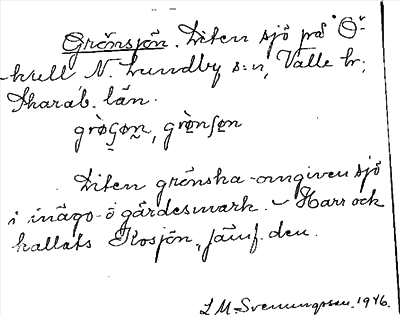 Grönsjön. Liten sjö på Ö-
kull N. Lundby s:n, Valle hr;
Skarab. län.
Liten grönska-omgiven sjö
i inägo- o gärdesmark. - Harr ock
kallats Kosjön, jämf. den.
L M-Svenungsson. 1946.